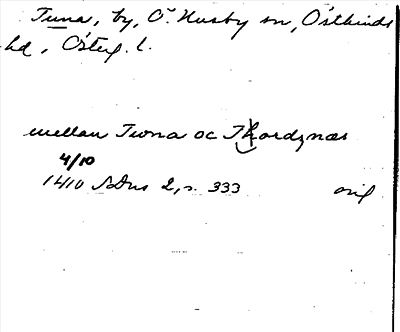 Tuna, by, Ö. Husby sn, Östkinds
hd, Österg. l.
mellan Twna oc Thordznæs
4/10
1410 SDns 2, s. 333 orig